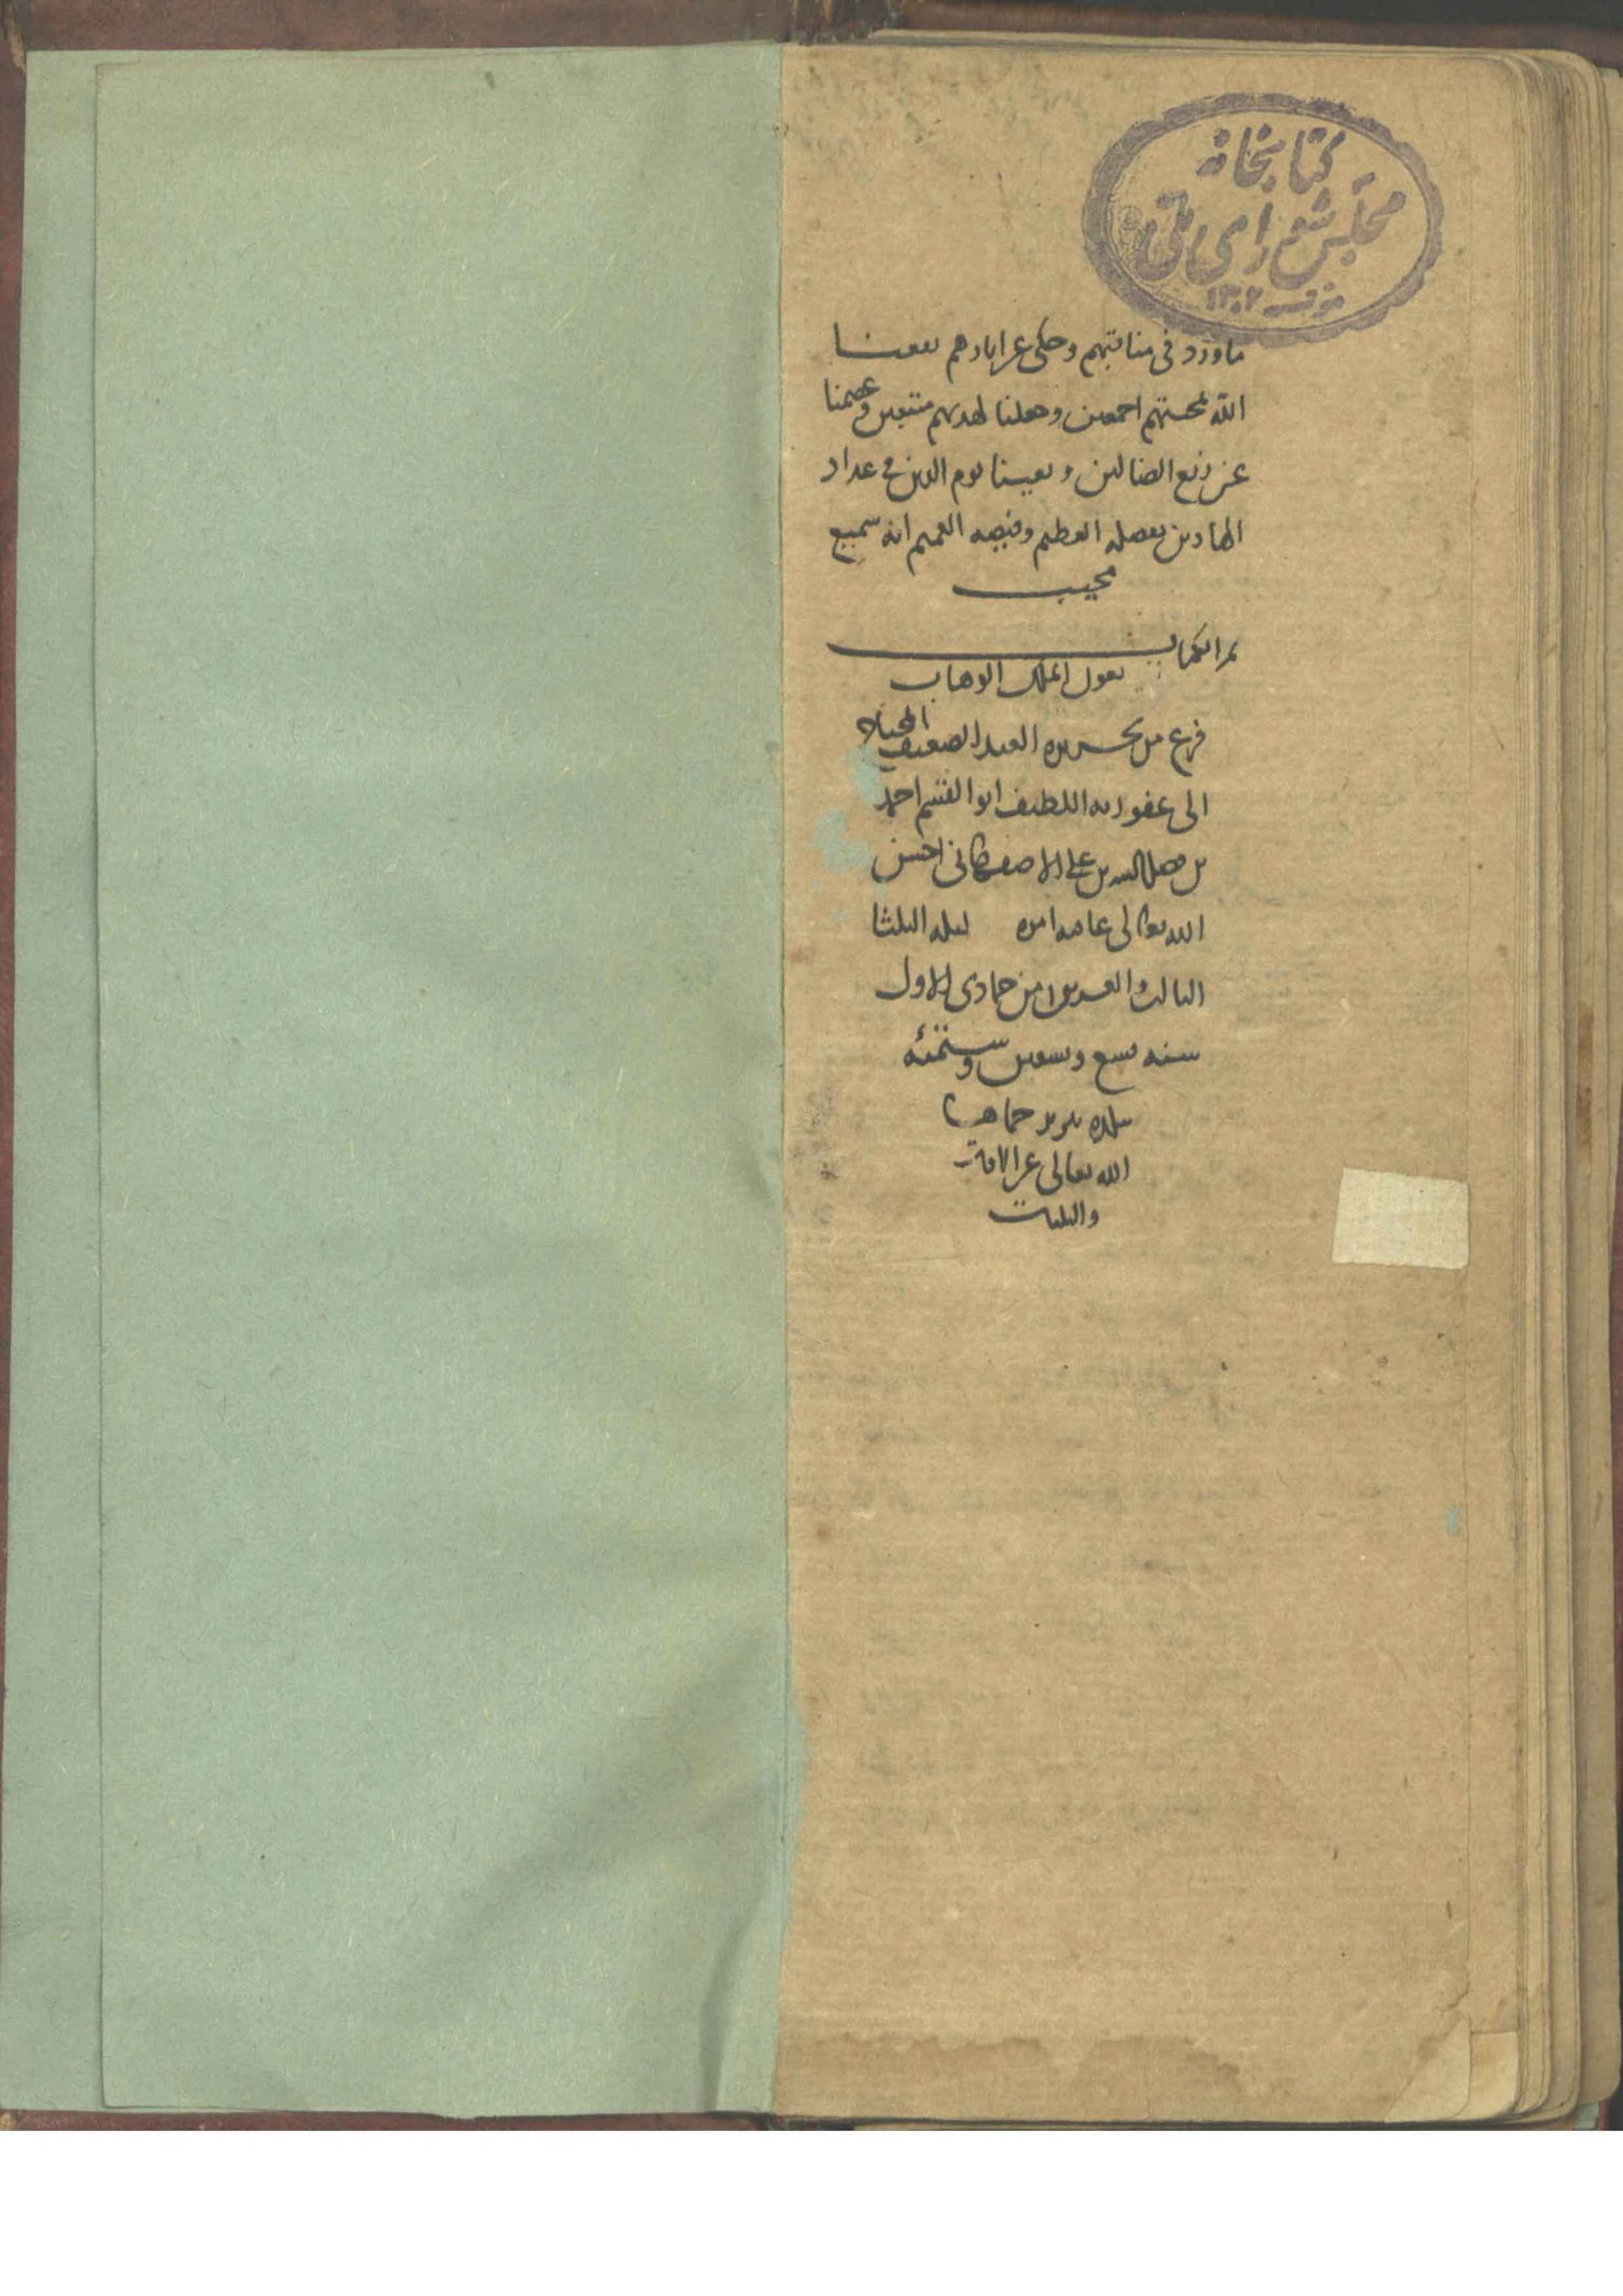 کتابخانه
مجلس شورای ملی
۱۳۰۲
ما ورد فی مناقبهم وحکی عن ابادهم نفعنا
الله بمحبتهم اجمعین وجعلنا لهدیهم متبعین وعصمنا
عن زیغ الضالین و یوم الدین فی عداد
الهادین بفضله العظیم وفیضه العمیم انه سمیع
مجیب
تم الکتاب
بعون الملک الوهاب
فرغ من تحریره العبد الضعیف المحتاج
الی عفو ربه اللطیف ابو القسم احمد
بن بن علی الاصفهانی احسن
الله تعالی عاقبة امره لیله الثلثا
الثالث والعشرین من جمادی الاول
سنه تسع وتسعین وستمئه
بلده تبریز حماها
الله تعالی عن الافات
والبلیات